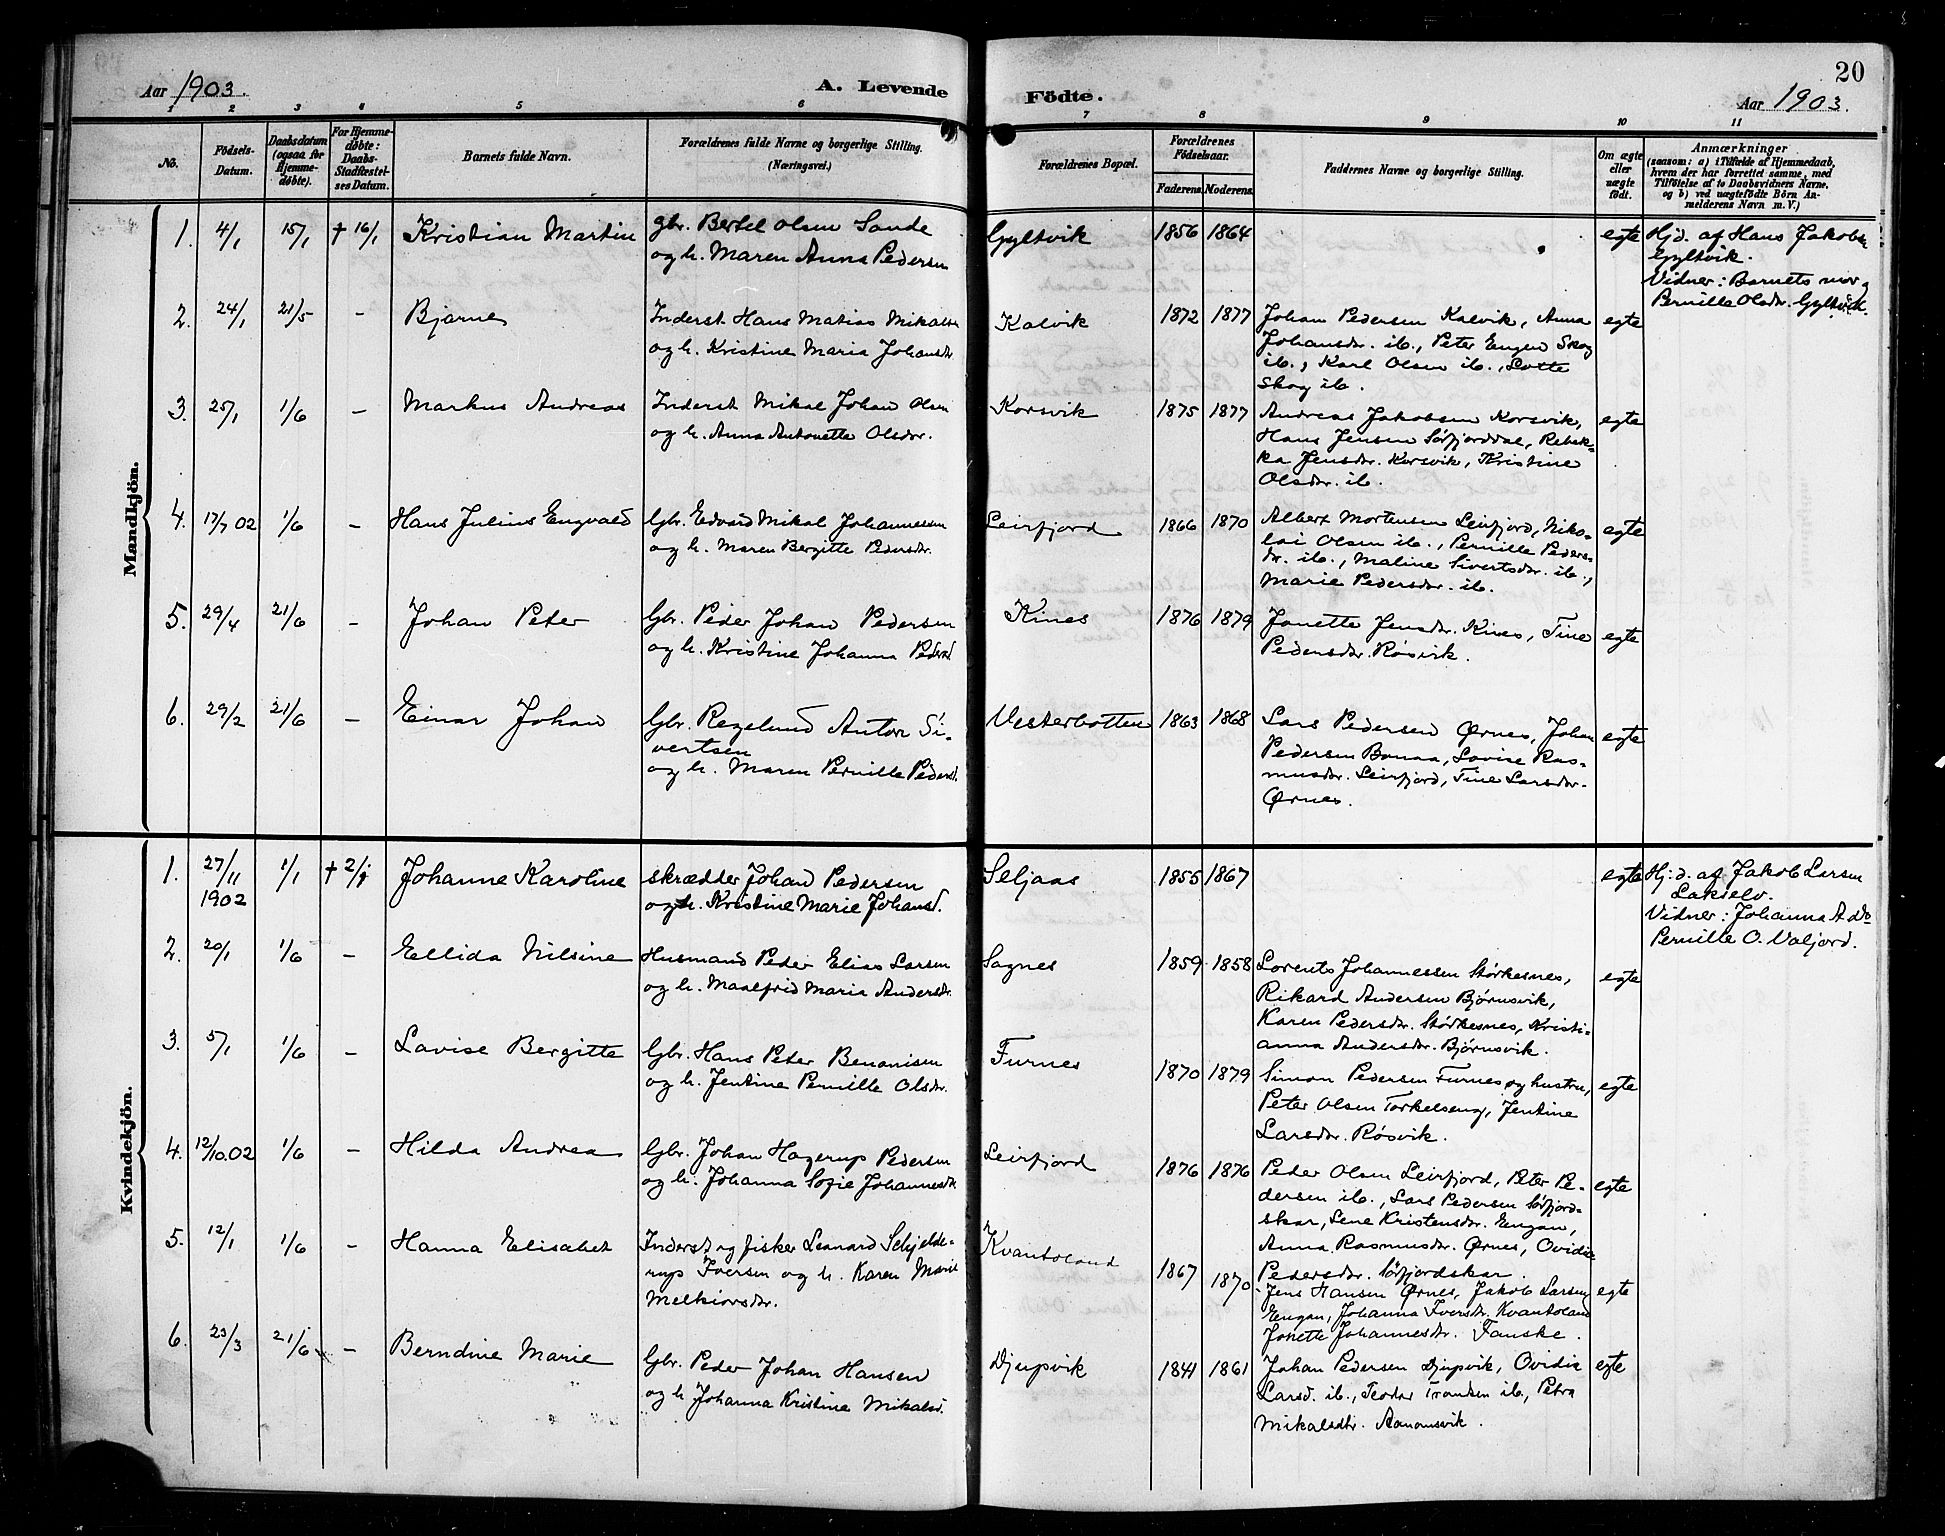 20
Aar 1903.
A. Levende Födte.
Aar 1903.
1 2 3 4 5 6 7 8 9 10 11
No.
Födsels-Datum.
Daabsdatum (ogsaa for Hjemmedöbte).
For Hjemmedöbte: Daabs-Stadfæstelses Datum.
Barnets fulde Navn.
Forældrenes fulde Navne og borgerlige Stilling. (Næringsvei.)
Forældrenes Bopæl.
Forældrenes Födselsaar.
Faderens. Moderens.
Faddernes Navne og borgerlige Stilling.
Om ægte eller uægte födt.
Anmærkninger
(saasom: a) i Tilfælde af Hjemmedaab,
hvem der har forrettet samme, med
Tilföielse af to Daabsvidners Navne,
og b) ved uægtefödte Börn Anmelderens Navn m. V.)
Mandkjön.
1. 4/1 15/1 † 16/1 Kristian Martin
gbr. Bertel Olsen Sande
og h. Maren Anna Pedersen
Gyltvik 1856 1864
egte
Hjd. af Hans Jakobs.
Gyltvik.
Vidner: Barnets mor og
Pernille Olsdr. Gyltvik.
2. 24/1 21/5 - Bjarne
Inderst Hans Matias Mikalsen
og h. Kristine Maria Johansdr.
Kalvik 1872 1877
Johan Pedersen Kalvik, Anna
Johansdr. ib., Peter Engen Skog
ib., Karl Olsen ib., Lotte
Skog ib.
egte
3. 25/1 1/6 - Markus Andreas
Inderst Mikal Johan Olsen
og h. Anna Antonette Olsdr.
Korsvik 1875 1877
Andreas Jakobsen Korsvik,
Hans Jensen Sörfjorddal, Rebek-
ka Jensdr. Korsvik, Kristine
Olsdr. ib.
egte
4. 17/7 02 1/6 - Hans Julius Engvald
Gbr. Edvard Mikal Johannessen
og h. Maren Bergitte Pedersdr.
Leirfjord 1866 1870
Albert Mortensen Leirfjord, Niko-
lai Olsen ib., Pernille Peders-
dr. ib., Maline Sivertsdr. ib.,
Marie Pedersdr. ib.
egte
5. 29/4 21/6 - Johan Peter
Gbr. Peder Johan Pedersen
og h. Kristine Johanna Pedersd
Kines 1876 1879
Jonette Jensdr. Kines, Tine
Pedersdr. Røsvik.
egte
6. 29/2 21/6 - Einar Johan
Gbr. Regelund Anton Si-
vertsen
og h. Maren Pernille Pedersd.
Vesterbotten 1863 1868
Lars Pedersen Ørnes, Johan
Pedersen Bonaa, Lovise Ras-
musdr. Leirfjord, Tine Larsdr.
Ørnes.
egte
Kvindekjön.
1. 27/11 1902 1/1 † 2/1 Johanne Karoline
skrædder Johan Pedersen
og h. Kristine Marie Johansd.
Seljaas 1855 1867
egte
Hj.d. af Jakob Larsen
Lakselv.
Vidner: Johanna A
Pernille O. Valjord.
2. 20/1 1/6 - Ellida Nilsine
Husmand Peder Elias Larsen
og h. Maalfrid Maria Andersdr.
Sagnes 1859 1858
Lorents Johannessen Störkesnes,
Rikard Andersen Bjørnsvik,
Karen Pedersdr. Störkesnes, Kristi-
anna Andersdr. Bjørnsvik.
egte
3. 5/1 1/6 - Lavise Bergitte
Gbr. Hans Peter Benonisen
og h. Jentine Pernille Olsdr.
Furnes 1870 1879
Simon Pedersen Furnes og hustru,
Peter Olsen Torkelseng, Jentine
Larsdr. Røsvik.
egte
4. 12/10.02 1/6 - Hilda Andrea
Gbr. Johan Hagerup Pedersen
og h. Johanna Sofie Johannesdr
Leirfjord 1876 1876
Peder Olsen Leirfjord, Peter Pe-
dersen ib., Lars Pedersen Sörfjord-
skar, Lene Kristensdr. Engan,
Anna Rasmusdr. Ørnes, Ovidie
Pedersdr. Sörfjordskar.
egte
5. 12/1 1/6 - Hanna Elisabet
Inderst og fisker Leonard Schjelde-
rup Iversen og h. Karen Marie
Melkiorsdr.
Kvantoland 1867 1870
Jens Hansen Ørnes, Jakob Larsen
Engan, Johanna Iversdr. Kvantoland
Jonette Johannesdr. Fauske.
egte
6. 23/3 21/6 - Berndine Marie
Gbr. Peder Johan Hansen
og h Johanna Kristine Mikalsd.
Djupvik 1841 1861
Johan Pedersen Djupvik, Ovidia
Larsd. ib., Teodor Trondsen ib., Petra
Mikalsdtr. Aanonsvik.
egte